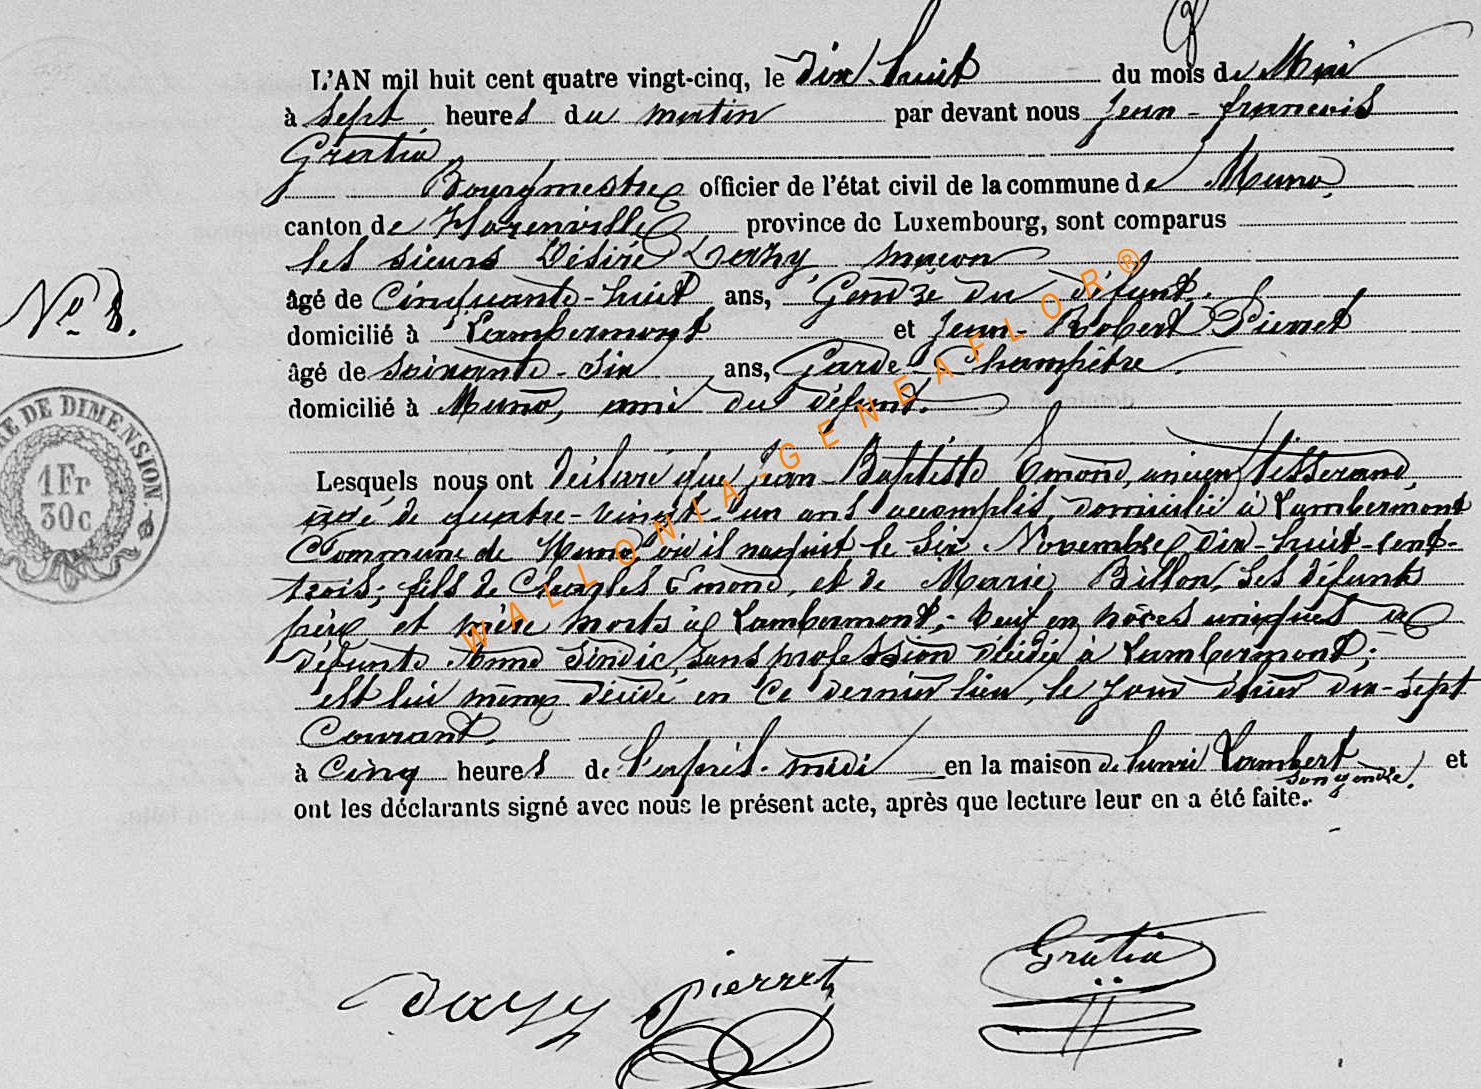 L'AN mil huit cent quatre vingt-cinq, le dix huit du mois de Mai
à sept heures du matin par devant nous Jean-françois
Gratia
Bourgmestre officier de l'état civil de la commune de Muno
canton de Florenville province de Luxembourg, sont comparus
les sieurs Désiré maçon
âgé de Cinquante-huit ans, Gendre du défunt.
domicilié à Lambermont et Jean-Robert Pierret
âgé de soixante-six ans, Garde Champêtre,
domicilié à Muno, ami du défunt.
No 8.
RE DE DIMENSION.
1 Fr
30c
Lesquels nous ont déclaré que Jean-Baptiste Emond, ancien tisserand,
âgé de quatre-vingt-un ans accomplis, domicilié à Lambermont
Commune de Muno où il naquit le six Novembre dix-huit-cent-
trois; fils de Charles Emond, et de Marie Billon, ses défunts
père et mère morts à Lambermont; veuf en nôces uniques de
défunte Anne Sindic, sans profession décédée à Lambermont;
est lui même décédé en ce dernier lieu, le jour d'hier dix-sept
Courant.
à Cinq heures de l'après-midi en la maison de henri Lambert son gendre, et
ont les déclarants signé avec nous le présent acte, après que lecture leur en a été faite.
pierret
Gratia
WALLONIA-GENEAFLOR®